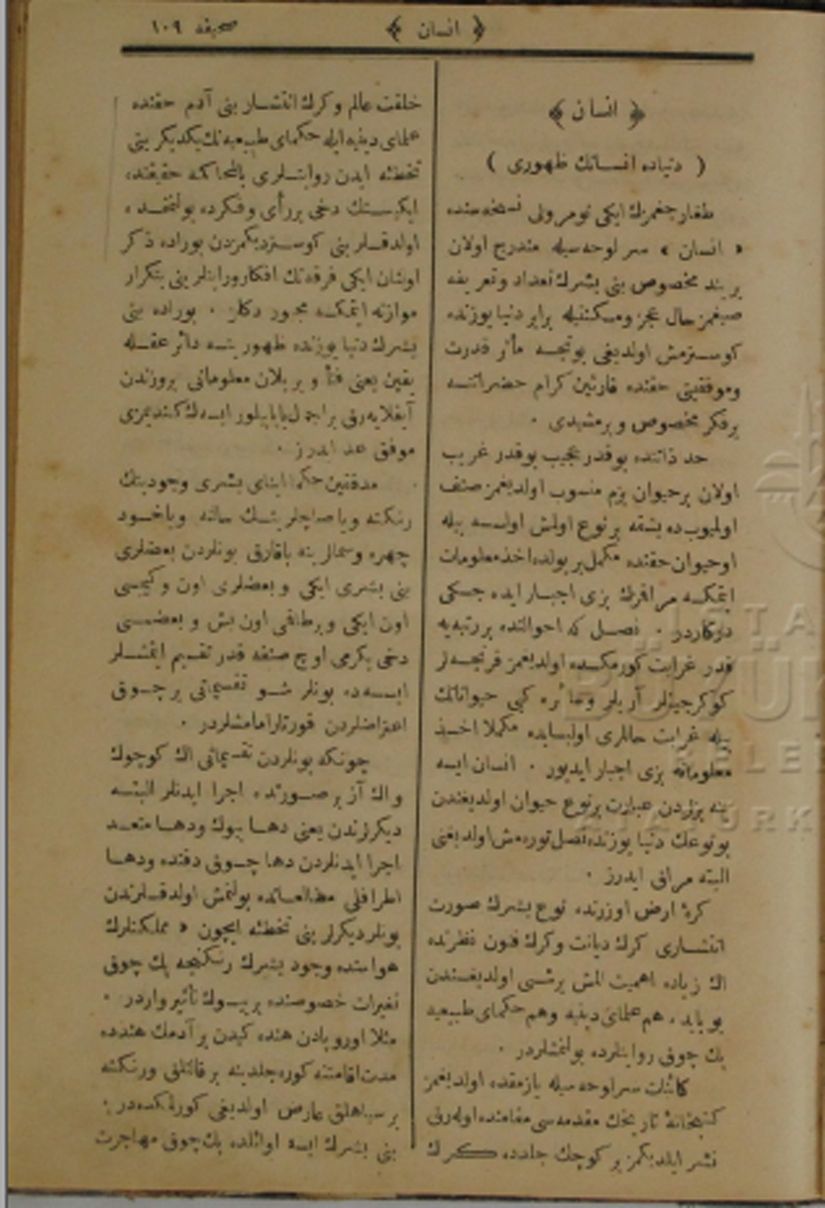 ﴿ انسان ﴾ صحیفه ۱۰۹
﴿ انسان ﴾
( دنیاده انسانك ظهوری )
طغارجغمزك ایكی نومرولی نسخه سنده
« انسان » سر لوحه سیله مندرج اولان
بر بند مخصوص بنی بشرك تعداد وتعریفه
صیغمز حال عجز ومسكنتیله برابر دنیا یوزنده
كوسترمش اولدیغی بونجه مآثر قدرت
وموفقیتی حقنده قارئین كرام حضراتنه
برفكر مخصوص ویرمشیدی .
حد ذاتنده بوقدر عجیب بوقدر غریب
اولان برحیوان بزم منسوب اولدیغمز صنف
اولمیوبده بشقه برنوع اولمش اولسه بیله
اوحیوان حقنده مكمل بر یولده اخذ معلومات
ایتمكه مراقزك بزی اجبار ایده جكی
دركاردر . فصل كه احوالنده بر رتبه یه
قدر غرابت كورمكده اولدیغمز قرنجه لر
كوكرجینلر آریلر وسائره كبی حیواناتك
بیله غرابت حاللری اولبابده مكملا اخذ
معلوماته بزی اجبار ایدیور . انسان ایسه
ینه بزلردن عبارت برنوع حیوان اولدیغندن
بونوعك دنیا یوزنده نصل توره مش اولدیغنی
البته مراق ایدرز .
كرهٔ ارض اوزرنده نوع بشرك صورت
انتشاری كرك دیانت وكرك فنون نظرنده
اك زیاده اهمیت آلمش برشی اولدیغندن
بو بابده هم علمای دینیه وهم حكمای طبیعیه
پك چوق روایتلرده بولنمشلردر .
كائنات سرلوحه سیله یازمقده اولدیغمز
كتبخانهٔ تاریخك مقدمه سی مقامنده اوله رق
نشر ایلدیكمز بر كوچك جلدده كرك
خلقت عالم وكرك انتشار بنی آدم حقنده
علمای دینیه ایله حكمای طبیعیه نك یكدیكرینی
تخطئه ایدن روایتلری بالمحاكمه حقیقتده
ایكیسنك دخی بر رأی وفكرده بولنمقده
اولدقلرینی كوستردیكمزدن بوراده ذكر
اولنان ایكی فرقه نك افكار وروایتلرینی بتكرار
موازنه ایتمكه مجبور دكلز . بوراده بنی
بشرك دنیا یوزنده ظهورینه دائر عقله
یقین یعنی فناً ویریلان معلوماتی بروزندن
آیقلایه رق بر اجمال یاپابیلور ایسه ك كندیمزی
موفق عد ایدرز .
مدققین حكما ابنای بشری وجودینك
رنكنه ویا صاچلرینك ساننه ویاخود
چهره وسیمالرینه باقارق بونلردن بعضلری
بنی بشری ایكی وبعضلری اون وكیمسی
اون ایكی وبرطاقی اون بش وبعضیسی
دخی یكرمی اوچ صنفه قدر تقسیم ایتمشلر
ایسه ده بونلر شو تقسیماتی بر چوق
اعتراضلردن قورتارامامشلردر .
چونكه بونلردن تقسیماتی اك كوچوك
واك آز بر صورتده اجرا ایدنلر البته
دیكرلرندن یعنی دها بیوك ودها متعدد
اجرا ایدنلردن دها چوق دقتده ودها
اطرافلی مطالعاتده بولنمش اولدقلرندن
بونلر دیكرلرینی تخطئه ایچون « مملكتلرك
هواسنده وجود بشرك رنكنجه پك چوق
تغیرات خصوصنده بریوك تأثیر واردر .
مثلا اوروپادن هنده كیدن بر آدمك هندده
مدت اقامتنه كوره جلدینه بر قالقلق ورنكنه
بر سیاهلق عارض اولدیغی كورلمكده در .
بنی بشرك ایسه اوائلده پك چوق مهاجرت